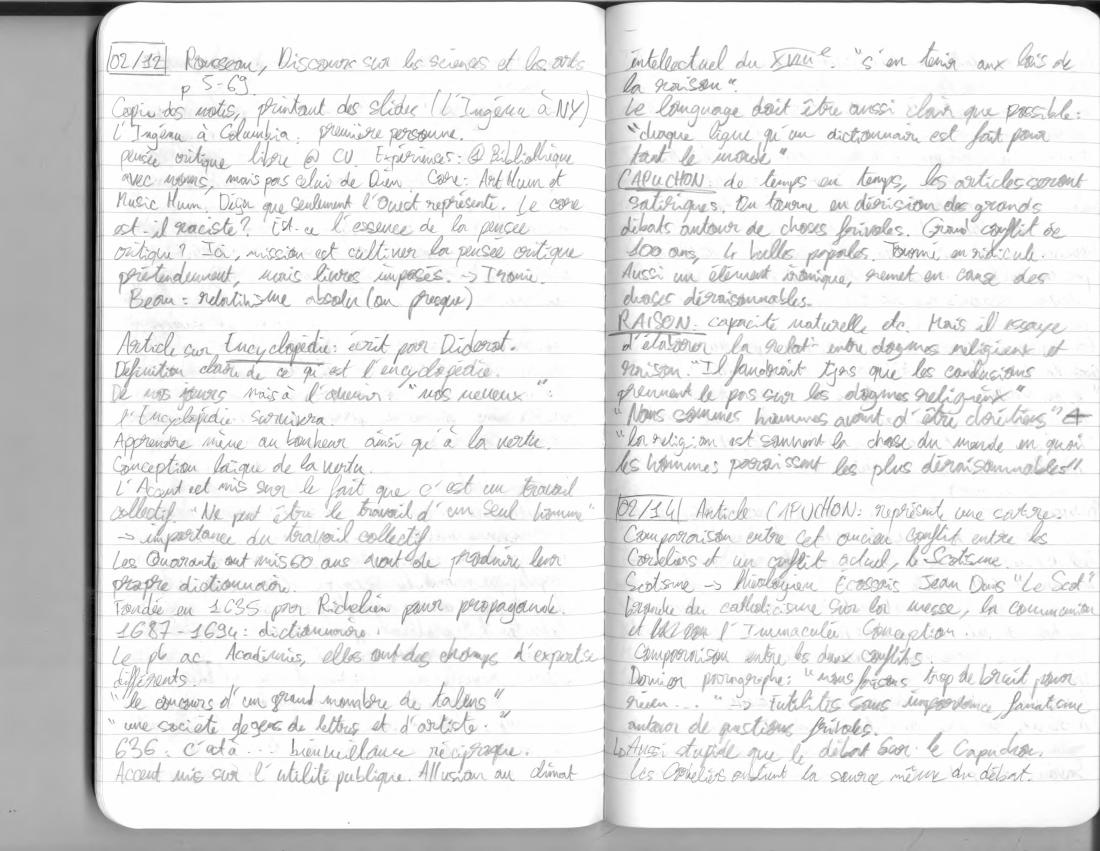 02/12 Rousseau, Discours sur les sciences et les arts
p 5-69.
Copie des notes, printout des slides (L'Ingénu à NY)
L'Ingénu à Columbia: première personne.
pensée critique libre @ CU. Expériences: @ Bibliothèque
avec noms, mais pas celui de Dien. Core: Art Hum et
Music Hum. Déçu que seulement l'Ouest représenté. Le core
est-il raciste? Est-ce l'essence de la pensée
critique? Ici, mission est cultiver la pensée critique
prétendument, mais livres imposés. → Ironie.
Beau = relativisme absolu (ou presque)
Article sur Encyclopédie: écrit par Diderot.
Définition claire de ce qu'est l'encyclopédie.
De nos jours mais à l'avenir "nos neveux":
l'Encyclopédie survivra.
Apprendre mène au bonheur ainsi qu'à la vertu.
Conception laïque de la vertu.
L'Accent est mis sur le fait que c'est un travail
collectif. "Ne peut être le travail d'un seul homme"
→ importance du travail collectif
Les Quarante ont mis 60 ans avant de produire leur
propre dictionnaire.
Fondée en 1635 par Richelieu pour propagande.
1687-1694: dictionnaire.
Le pb ac. Académies, elles ont des champs d'expertise
différents
"le concours d'un grand nombre de talens"
"une société de gens de lettres et d'artiste."
636: c'atà... bienveillance réciproque.
Accent mis sur l'utilité publique. Allusion au climat
intellectuel du XVIIIe. "s'en tenir aux lois de
la raison".
Le language doit être aussi clair que possible:
"chaque ligne qu'un dictionnair est fait pour
tout le monde"
CAPUCHON: de temps en temps, les articles seront
satiriques. On tourne en dérision des grands
débats autour de choses frivoles. Grand conflit de
100 ans, 4 bulles papales. Tourné en ridicule.
Aussi un élément ironique, remet en cause des
choses déraisonnables.
RAISON: capacité naturelle etc. Mais il essaye
d'élaborer la relat° entre dogmes religieux et
raison. "Il faudroit tjors que les conclusions
prennent le pas sur les dogmes religieux"
"Nous sommes hommes avant d'être chrétiens" &
"la religion est souvent la chose du monde en quoi
les hommes paraissent les plus déraisonnables".
02/14 Article CAPUCHON: représente une satire.
Comparaison entre cet ancien conflit entre les
Cordeliers et un conflit actuel, le Scotisme.
Scotisme → théologien Ecossais Jean Duns "Le Scot"
branche du catholicisme sur la messe, la communion
et l'Immaculée Conception.
Comparaison entre les deux conflits.
Dernier paragraphe: "nous faisons trop de bruit pour
rien..." → Futilités sans importance fanatisme
autour de questions frivoles.
↳ Aussi stupide que le débat sur le Capuchon.
Les Cordeliers la source même du débat.